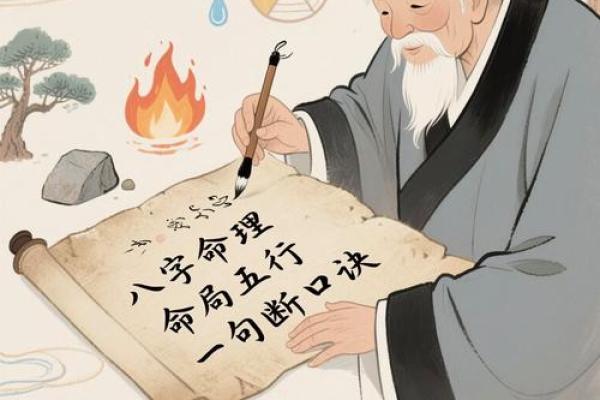 八字命理
命局五行
一句断口诀